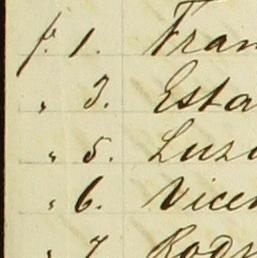 f. 1. Fran
" 3. Esta
" 5. Luzi
" 6. Vicen
" 7. Rodr